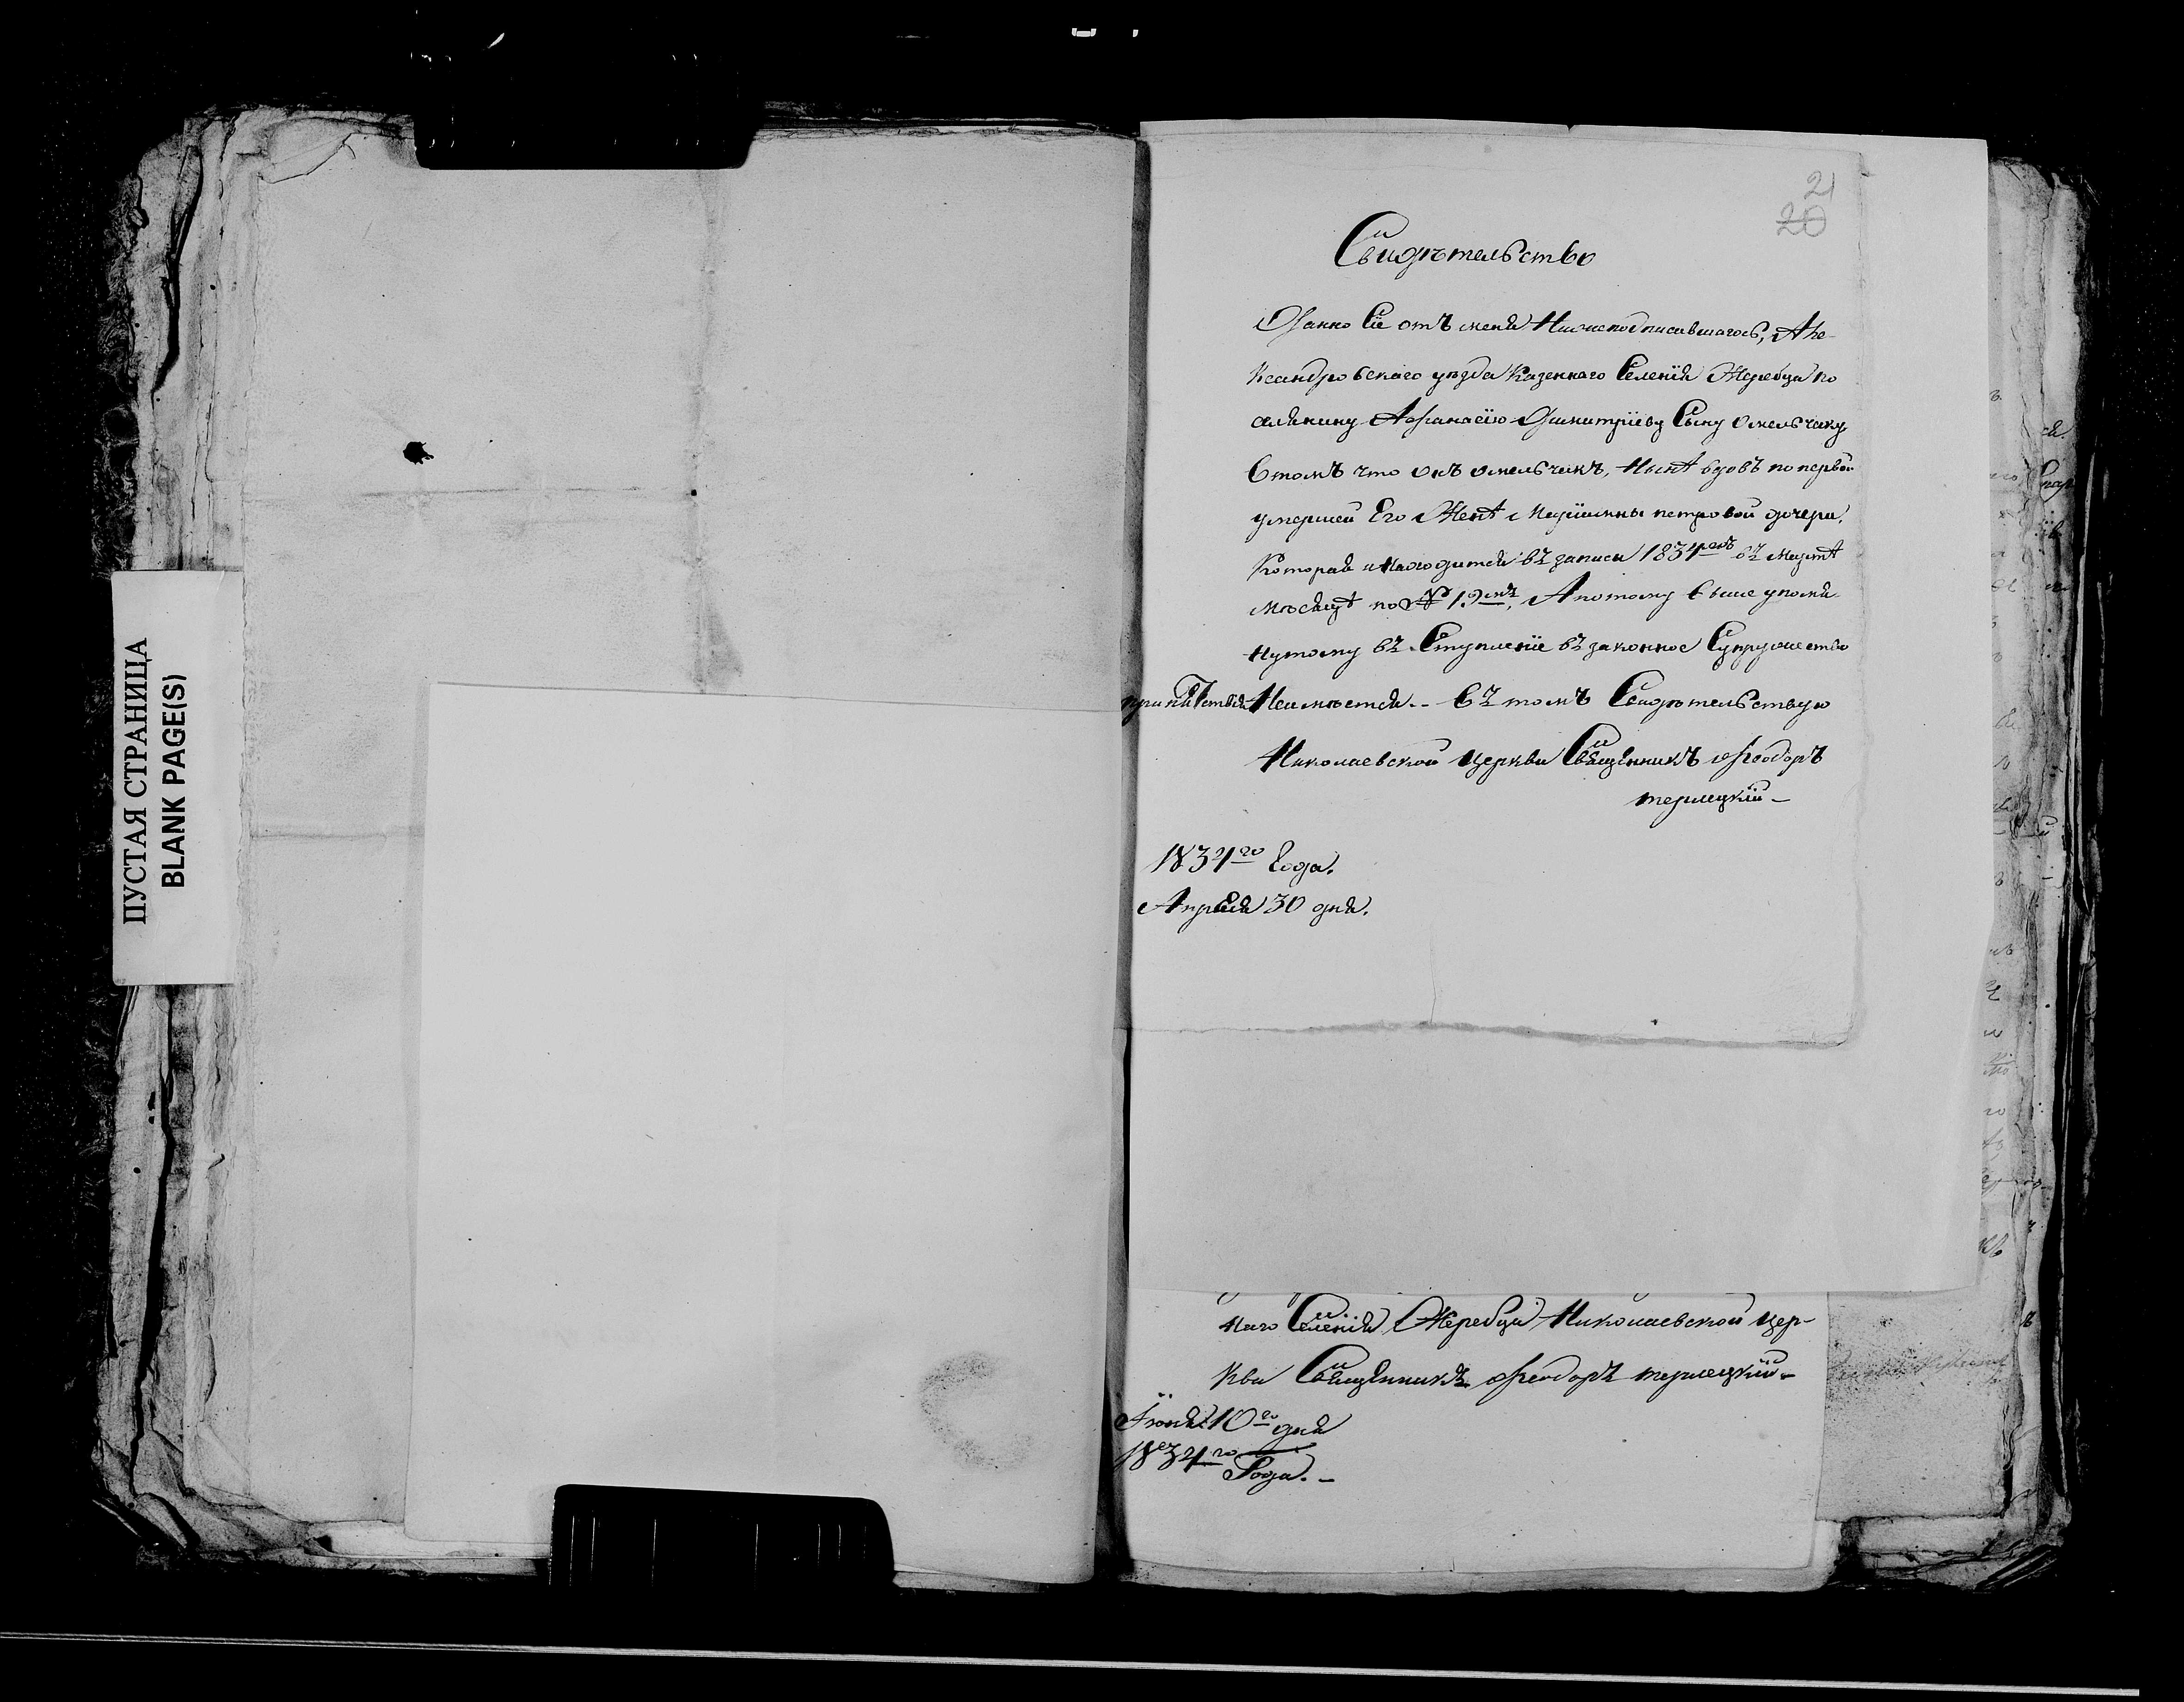 ПУСТАЯ СТРАНИЦА
BLANK PAGE(S)
21
20
Свидѣтельство
Данно Сіе отъ меня Нижеподписавшагось, Але-
ксандровскаго уѣзда Казеннаго Селенія Жеребца по
селянину Афанасію Димитріеву Сыну Омельчаку
Втомъ что онъ омельчакъ, Нынѣ вдовъ по первой
умершей Его Женѣ Маріамны петровой дочери,
Которая и находится въ записи 1834 въ Мартѣ
мѣсяцѣ по № 19мъ, А потому Выше упомя
нутому въ Ступленіе въ законное Супружество
припятствія Неимѣется.- Въ томъ Свидѣтельствую
Николаевской церкви Священникъ Феодоръ
терлецкій-
1834го Года.
Апреля 30 дня.
наго Селенія Жеребца Николаевской цер-
кви Священникъ Феодоръ терлецкій-
Іюня 10го дня
1834го Года.-